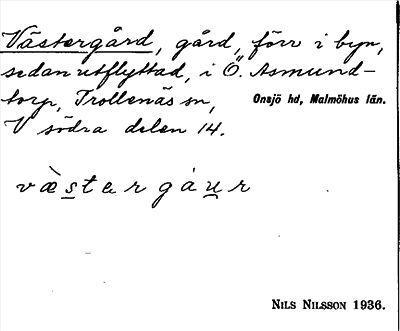 Västergård, gård, förr i byn,
sedan utflyttad, i Ö. Asmund-
torp, Trollenäs sn, Onsjö hd, Malmöhus län.
V södra delen 14.
væ̀stergáur
NILS NILSSON 1936.